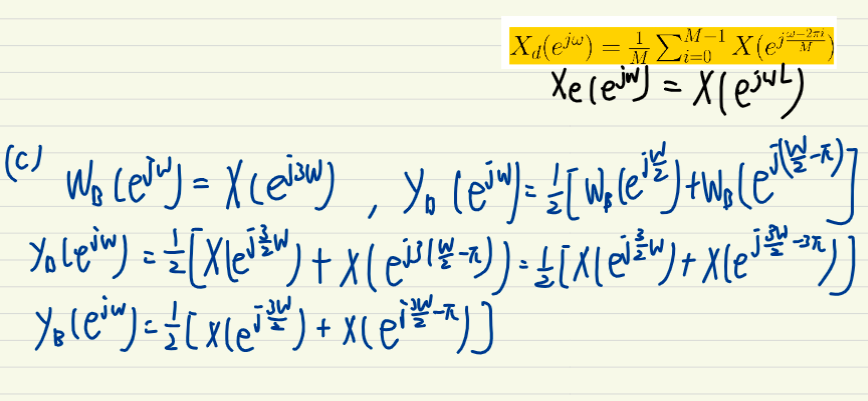 X_d(e^{jω}) = \frac{1}{M} \sum_{i=0}^{M-1} X(e^{j\frac{ω-2πi}{M}})
X_e(e^{jω}) = X(e^{jωL})
(c) W_B(e^{jω}) = X(e^{j3ω}) , Y_B(e^{jω}) = \frac{1}{2}[W_B(e^{j\frac{ω}{2}}) + W_B(e^{j(\frac{ω}{2}-π)}]
Y_B(e^{jω}) = \frac{1}{2}[X(e^{j\frac{3}{2}ω}) + X(e^{j3(\frac{ω}{2}-π)}) = \frac{1}{2}[X(e^{j\frac{3}{2}ω}) + X(e^{j\frac{3ω}{2}-3π})]
Y_B(e^{jω}) = \frac{1}{2}[X(e^{j\frac{3ω}{2}}) + X(e^{j\frac{3ω}{2}-π})]